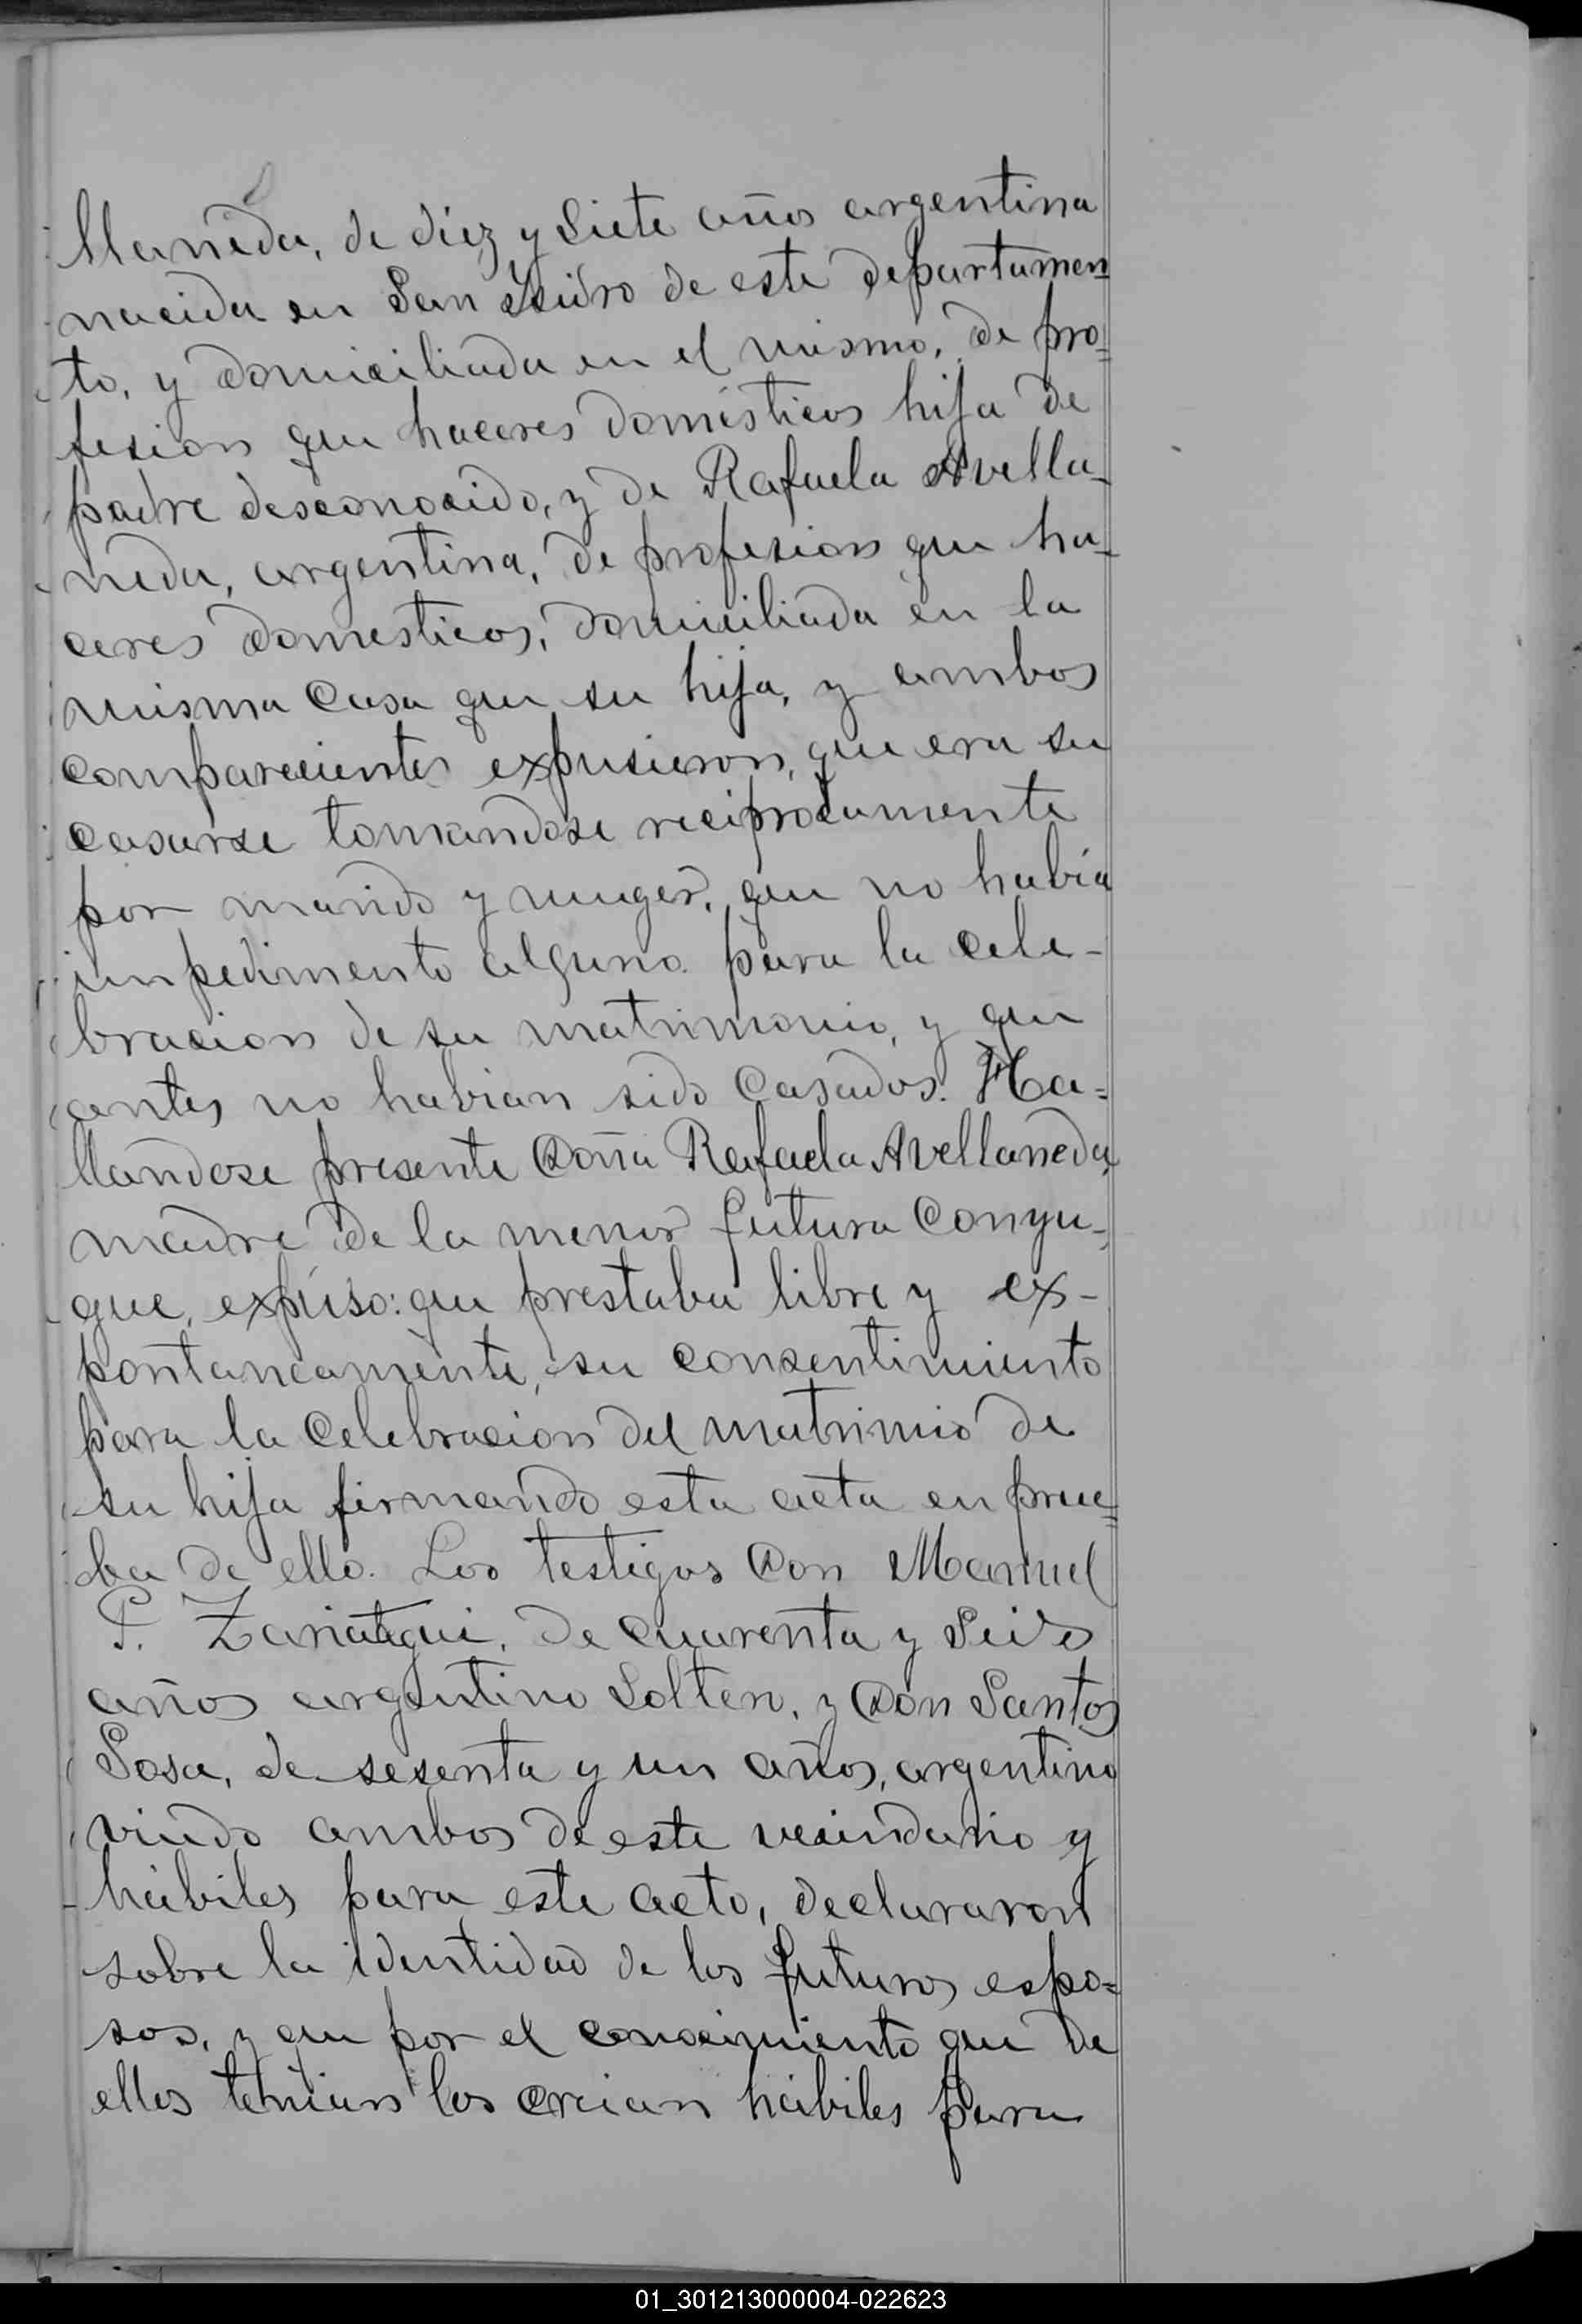 llaneda, de diez y siete años argentina
nacida en San Isidro de este departamen
to, y domiciliada en el mismo, de pro=
fesion que haceres domésticos hija de
padre desconocido, y de Rafaela Avella-
neda, argentina, de profesion que ha-
ceres domesticos, domiciliada en la
misma casa que su hija, y ambos
comparecientes expusieron, que era su
casarse tomandose reciprocamente
por marido y muger, que no había
impedimento alguno para la cele-
bracion de su matrimonio, y que
antes no habian sido casados. Ha=
llandose presente Doña Rafaela Avellaneda,
madre de la menor futura conyu-
gue, expuso: que prestaba libre y ex-
pontaneamente, su consentimiento
para la celebracion del matrimio de
su hija firmando esta acta en prue=
ba de ello. Los testigos Don Manuel
P. Zariategui, de cuarenta y seis
años argentino solten, y Don Santos
Sosa, de sesenta y un años, argentino
viudo ambos de este vecindario y
hábiles para este acto, declararon
sobre la identidad de los futuros espo=
sos, y que por el conocimiento que de
ellos tenian los creian hábiles para
01_301213000004-022623